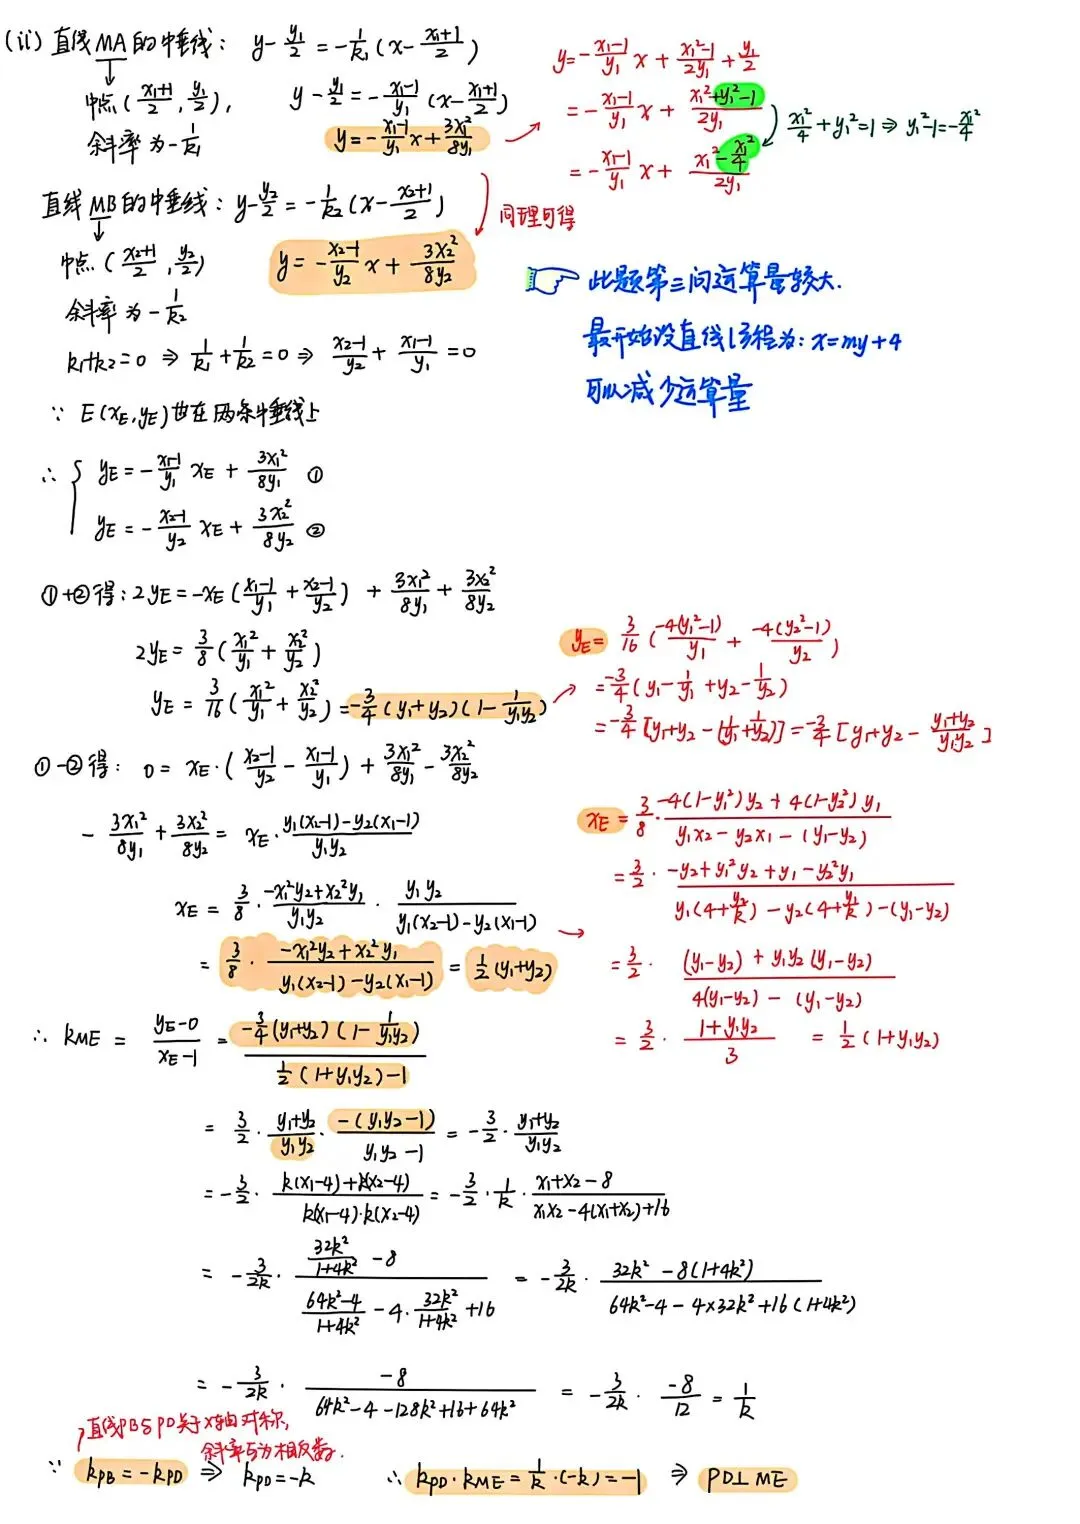 (ii) 直线MA的中垂线: y-\frac{y_1}{2}=-\frac{1}{k_1}(x-\frac{x_1+1}{2})
中点(\frac{x_1+1}{2},\frac{y_1}{2}), y-\frac{y_1}{2}=-\frac{x_1-1}{y_1}(x-\frac{x_1+1}{2})
斜率为-\frac{1}{k_1} y=-\frac{x_1-1}{y_1}x+\frac{3x_1^2}{8y_1}
y=-\frac{x_1-1}{y_1}x+\frac{x_1^2-1}{2y_1}+\frac{y_1}{2}
=-\frac{x_1-1}{y_1}x+\frac{x_1^2+y_1^2-1}{2y_1}
\frac{x_1^2}{4}+y_1^2=1⇒y_1^2-1=-\frac{x_1^2}{4}
=-\frac{x_1-1}{y_1}x+\frac{x_1^2-\frac{x_1^2}{4}}{2y_1}
直线MB的中垂线: y-\frac{y_2}{2}=-\frac{1}{k_2}(x-\frac{x_2+1}{2})
同理可得
中点(\frac{x_2+1}{2},\frac{y_2}{2}) y=-\frac{x_2-1}{y_2}x+\frac{3x_2^2}{8y_2}
斜率为-\frac{1}{k_2}
k_1+k_2=0⇒\frac{1}{k_1}+\frac{1}{k_2}=0⇒\frac{x_2-1}{y_2}+\frac{x_1-1}{y_1}=0
此题第三问运算量较大.
最开始设直线l方程为: x=my+4
可以减少运算量
∵ E(x_E,y_E)也在两条中垂线上
∴ { y_E=-\frac{x_1-1}{y_1}x_E+\frac{3x_1^2}{8y_1} ①
y_E=-\frac{x_2-1}{y_2}x_E+\frac{3x_2^2}{8y_2} ②
①+②得: 2y_E=-x_E(\frac{x_1-1}{y_1}+\frac{x_2-1}{y_2})+\frac{3x_1^2}{8y_1}+\frac{3x_2^2}{8y_2}
2y_E=\frac{3}{8}(\frac{x_1^2}{y_1}+\frac{x_2^2}{y_2})
y_E=\frac{3}{16}(\frac{x_1^2}{y_1}+\frac{x_2^2}{y_2})=-\frac{3}{4}(y_1+y_2)(1-\frac{1}{y_1y_2})
y_E=\frac{3}{16}(\frac{-4(y_1^2-1)}{y_1}+\frac{-4(y_2^2-1)}{y_2})
=-\frac{3}{4}(y_1-\frac{1}{y_1}+y_2-\frac{1}{y_2})
=-\frac{3}{4}[y_1+y_2-(\frac{1}{y_1}+\frac{1}{y_2})]=-\frac{3}{4}[y_1+y_2-\frac{y_1+y_2}{y_1y_2}]
①-②得: 0=x_E·(\frac{x_2-1}{y_2}-\frac{x_1-1}{y_1})+\frac{3x_1^2}{8y_1}-\frac{3x_2^2}{8y_2}
-\frac{3x_1^2}{8y_1}+\frac{3x_2^2}{8y_2}=x_E·\frac{y_1(x_2-1)-y_2(x_1-1)}{y_1y_2}
x_E=\frac{3}{8}·\frac{-x_1^2y_2+x_2^2y_1}{y_1y_2}·\frac{y_1y_2}{y_1(x_2-1)-y_2(x_1-1)}
=\frac{3}{8}·\frac{-x_1^2y_2+x_2^2y_1}{y_1(x_2-1)-y_2(x_1-1)}=\frac{1}{2}(y_1+y_2)
x_E=\frac{3}{8}·\frac{-4(1-y_1^2)y_2+4(1-y_2^2)y_1}{y_1x_2-y_2x_1-(y_1-y_2)}
=\frac{3}{2}·\frac{-y_2+y_1^2y_2+y_1-y_2^2y_1}{y_1(4+\frac{y_2}{k})-y_2(4+\frac{y_1}{k})-(y_1-y_2)}
=\frac{3}{2}·\frac{(y_1-y_2)+y_1y_2(y_1-y_2)}{4(y_1-y_2)-(y_1-y_2)}
=\frac{3}{2}·\frac{1+y_1y_2}{3}=\frac{1}{2}(1+y_1y_2)
∴ k_{ME}=\frac{y_E-0}{x_E-1}=\frac{-\frac{3}{4}(y_1+y_2)(1-\frac{1}{y_1y_2})}{\frac{1}{2}(1+y_1y_2)-1}
=\frac{3}{2}·\frac{y_1+y_2}{y_1y_2}·\frac{-(y_1y_2-1)}{y_1y_2-1}=-\frac{3}{2}·\frac{y_1+y_2}{y_1y_2}
=-\frac{3}{2}·\frac{k(x_1-4)+k(x_2-4)}{k(x_1-4)·k(x_2-4)}=-\frac{3}{2}·\frac{1}{k}·\frac{x_1+x_2-8}{x_1x_2-4(x_1+x_2)+16}
=-\frac{3}{2k}·\frac{\frac{32k^2}{1+4k^2}-8}{\frac{64k^2-4}{1+4k^2}-4·\frac{32k^2}{1+4k^2}+16}=-\frac{3}{2k}·\frac{32k^2-8(1+4k^2)}{64k^2-4-4×32k^2+16(1+4k^2)}
=-\frac{3}{2k}·\frac{-8}{64k^2-4-128k^2+16+64k^2}=-\frac{3}{2k}·\frac{-8}{12}=\frac{1}{k}
直线PB与PD关于x轴对称,
斜率互为相反数.
∵ k_{PB}=-k_{PD}⇒k_{PD}=-k ∴ k_{PD}·k_{ME}=\frac{1}{k}·(-k)=-1 ⇒ PD⊥ME